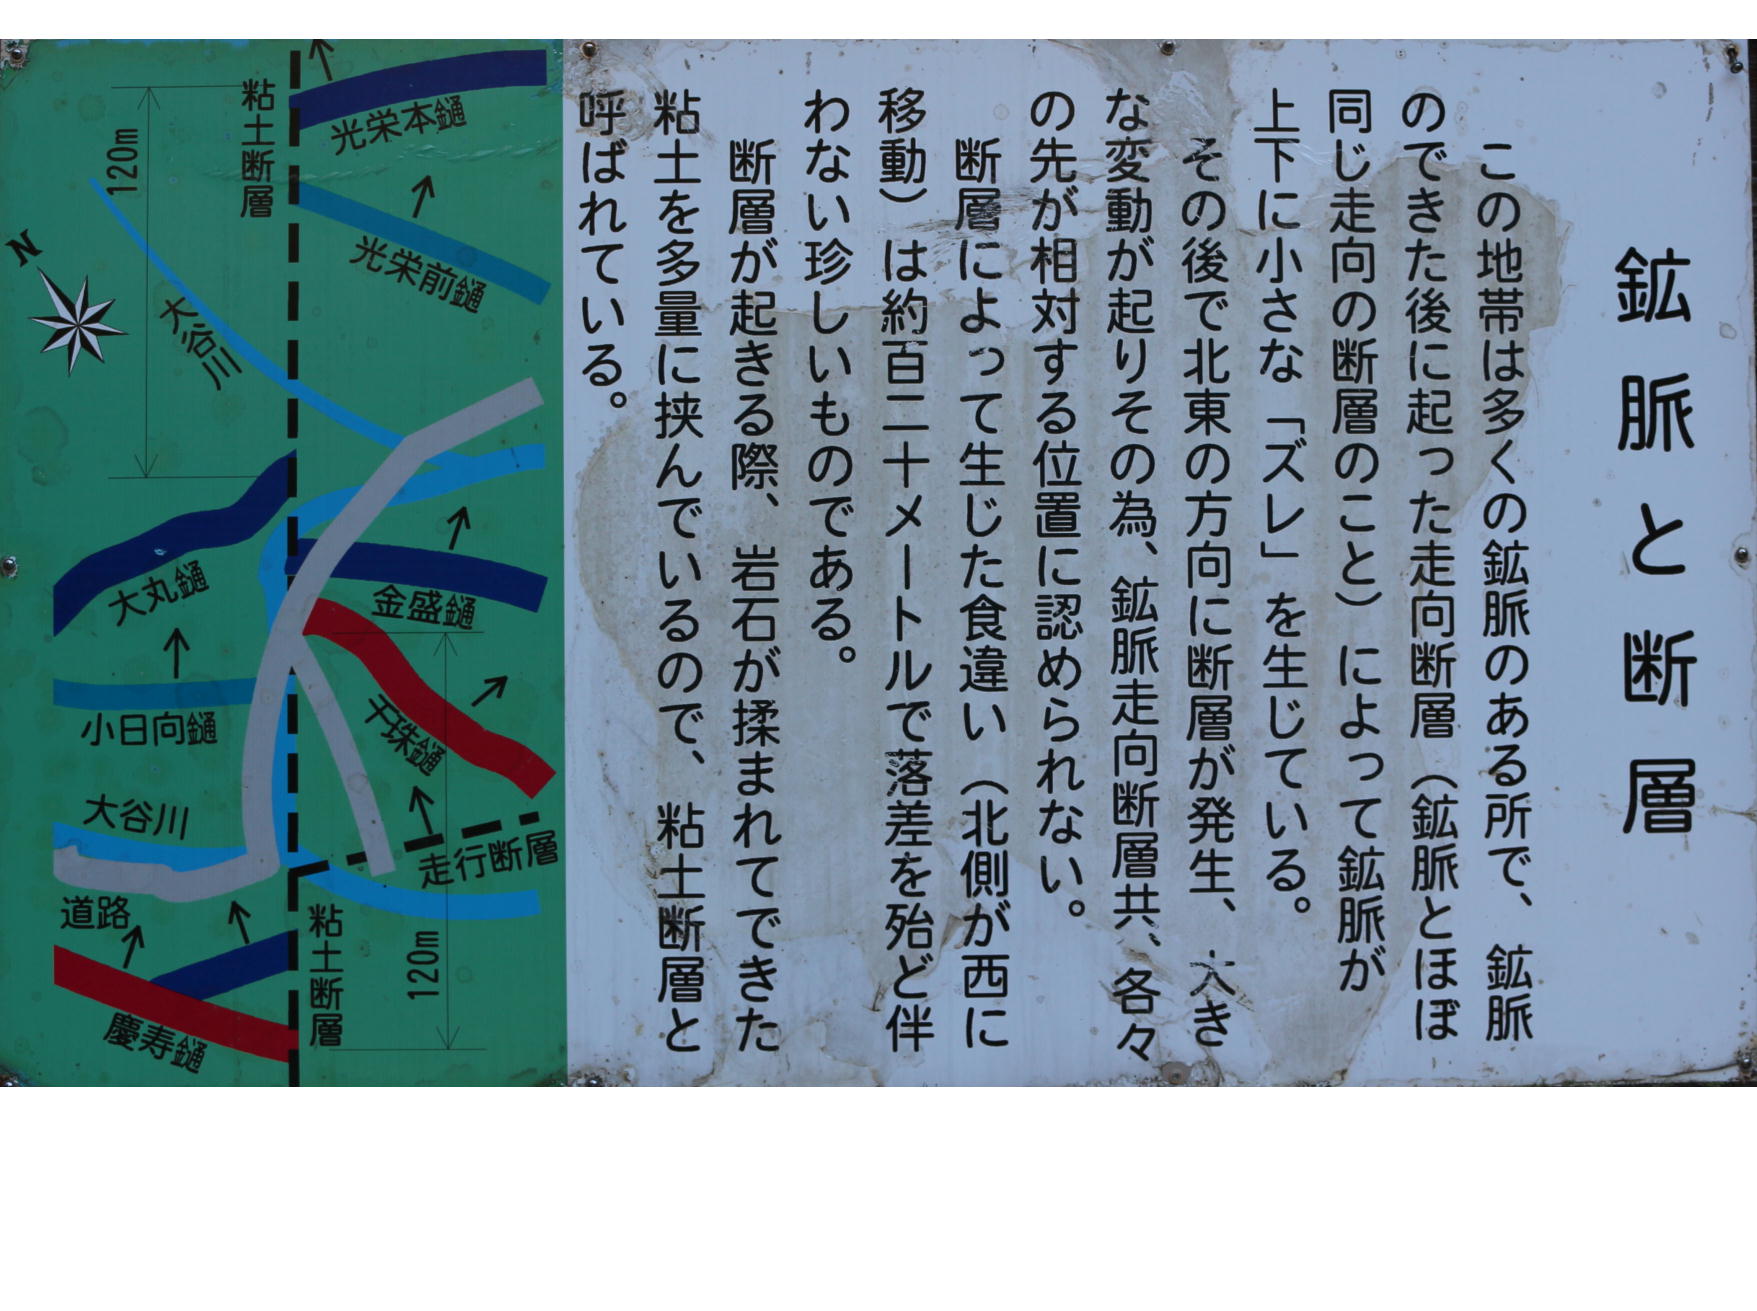 鉱脈と断層
この地帯は多くの鉱脈のある所で、鉱脈
のできた後に起った走向断層（鉱脈とほぼ
同じ走向の断層のこと）によって鉱脈が
上下に小さな「ズレ」を生じている。
その後で北東の方向に断層が発生、大き
な変動が起りその為、鉱脈走向断層共、各々
の先が相対する位置に認められない。
断層によって生じた食違い（北側が西に
移動）は約百二十メートルで落差を殆ど伴
わない珍しいものである。
断層が起きる際、岩石が揉まれてできた
粘土を多量に挟んでいるので、粘土断層と
呼ばれている。
粘土断層
120m
光栄本鐹
光栄前鐹
N
大谷川
大丸鐹
金盛鐹
小日向鐹
千珠鐹
大谷川
走行断層
道路
粘土断層
120m
慶寿鐹